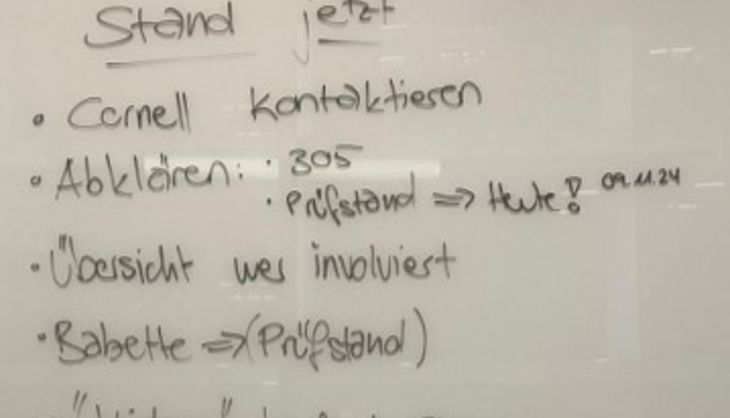 Stand jetzt
• Cornell kontaktieren
• Abklären: · 305
· Prüfstand => Heute! 09.11.24
• Übersicht wer involviert
• Babette => (Prüfstand)